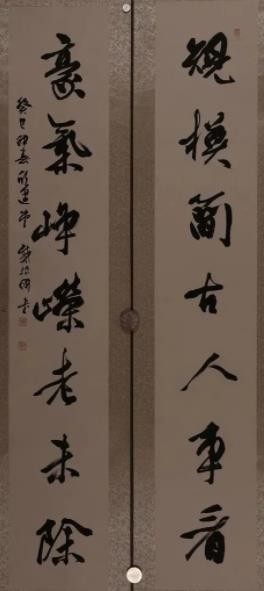 規模簡古人爭看
豪氣崢嶸老未除
癸巳初春